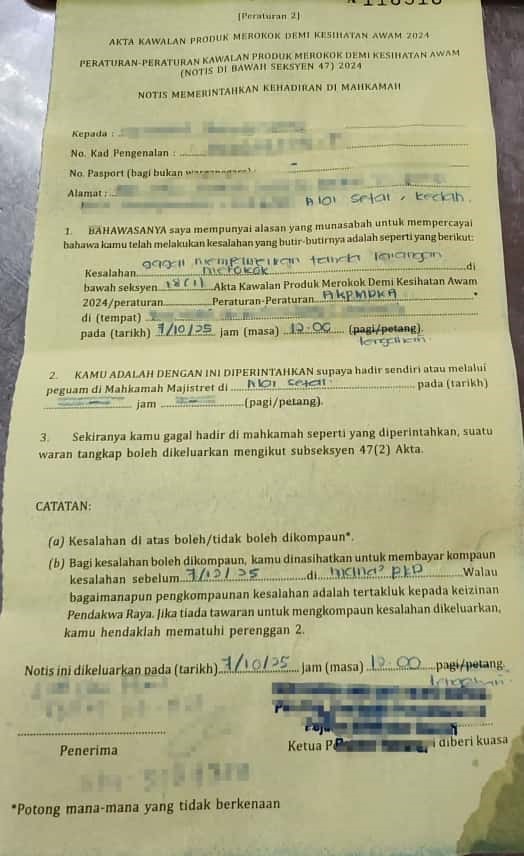 [Peraturan 2]
AKTA KAWALAN PRODUK MEROKOK DEMI KESIHATAN AWAM 2024
PERATURAN-PERATURAN KAWALAN PRODUK MEROKOK DEMI KESIHATAN AWAM
(NOTIS DI BAWAH SEKSYEN 47) 2024
NOTIS MEMERINTAHKAN KEHADIRAN DI MAHKAMAH
Kepada :
No. Kad Pengenalan :
No. Pasport (bagi bukan warganegara) :
Alamat :
Alor Setar, Kedah.
1. BAHAWASANYA saya mempunyai alasan yang munasabah untuk mempercayai
bahawa kamu telah melakukan kesalahan yang butir-butirnya adalah seperti yang berikut:
gagal mempamerkan tanda larangan
Kesalahan merokok di
bawah seksyen 18(1) Akta Kawalan Produk Merokok Demi Kesihatan Awam
2024/peraturan Peraturan-Peraturan AKPMDKA
di (tempat)
pada (tarikh) 7/10/25 jam (masa) 12.00 (pagi/petang).
tengahari
2. KAMU ADALAH DENGAN INI DIPERINTAHKAN supaya hadir sendiri atau melalui
peguam di Mahkamah Majistret di Alor Setar pada (tarikh)
jam (pagi/petang).
3. Sekiranya kamu gagal hadir di mahkamah seperti yang diperintahkan, suatu
waran tangkap boleh dikeluarkan mengikut subseksyen 47(2) Akta.
CATATAN:
(a) Kesalahan di atas boleh/tidak boleh dikompaun*.
(b) Bagi kesalahan boleh dikompaun, kamu dinasihatkan untuk membayar kompaun
kesalahan sebelum 7/12/25 di mana² PKD Walau
bagaimanapun pengkompaunan kesalahan adalah tertakluk kepada keizinan
Pendakwa Raya. Jika tiada tawaran untuk mengkompaun kesalahan dikeluarkan,
kamu hendaklah mematuhi perenggan 2.
Notis ini dikeluarkan pada (tarikh) 7/10/25 jam (masa) 12.00 pagi/petang.
tengahari
Penerima
Ketua diberi kuasa
*Potong mana-mana yang tidak berkenaan